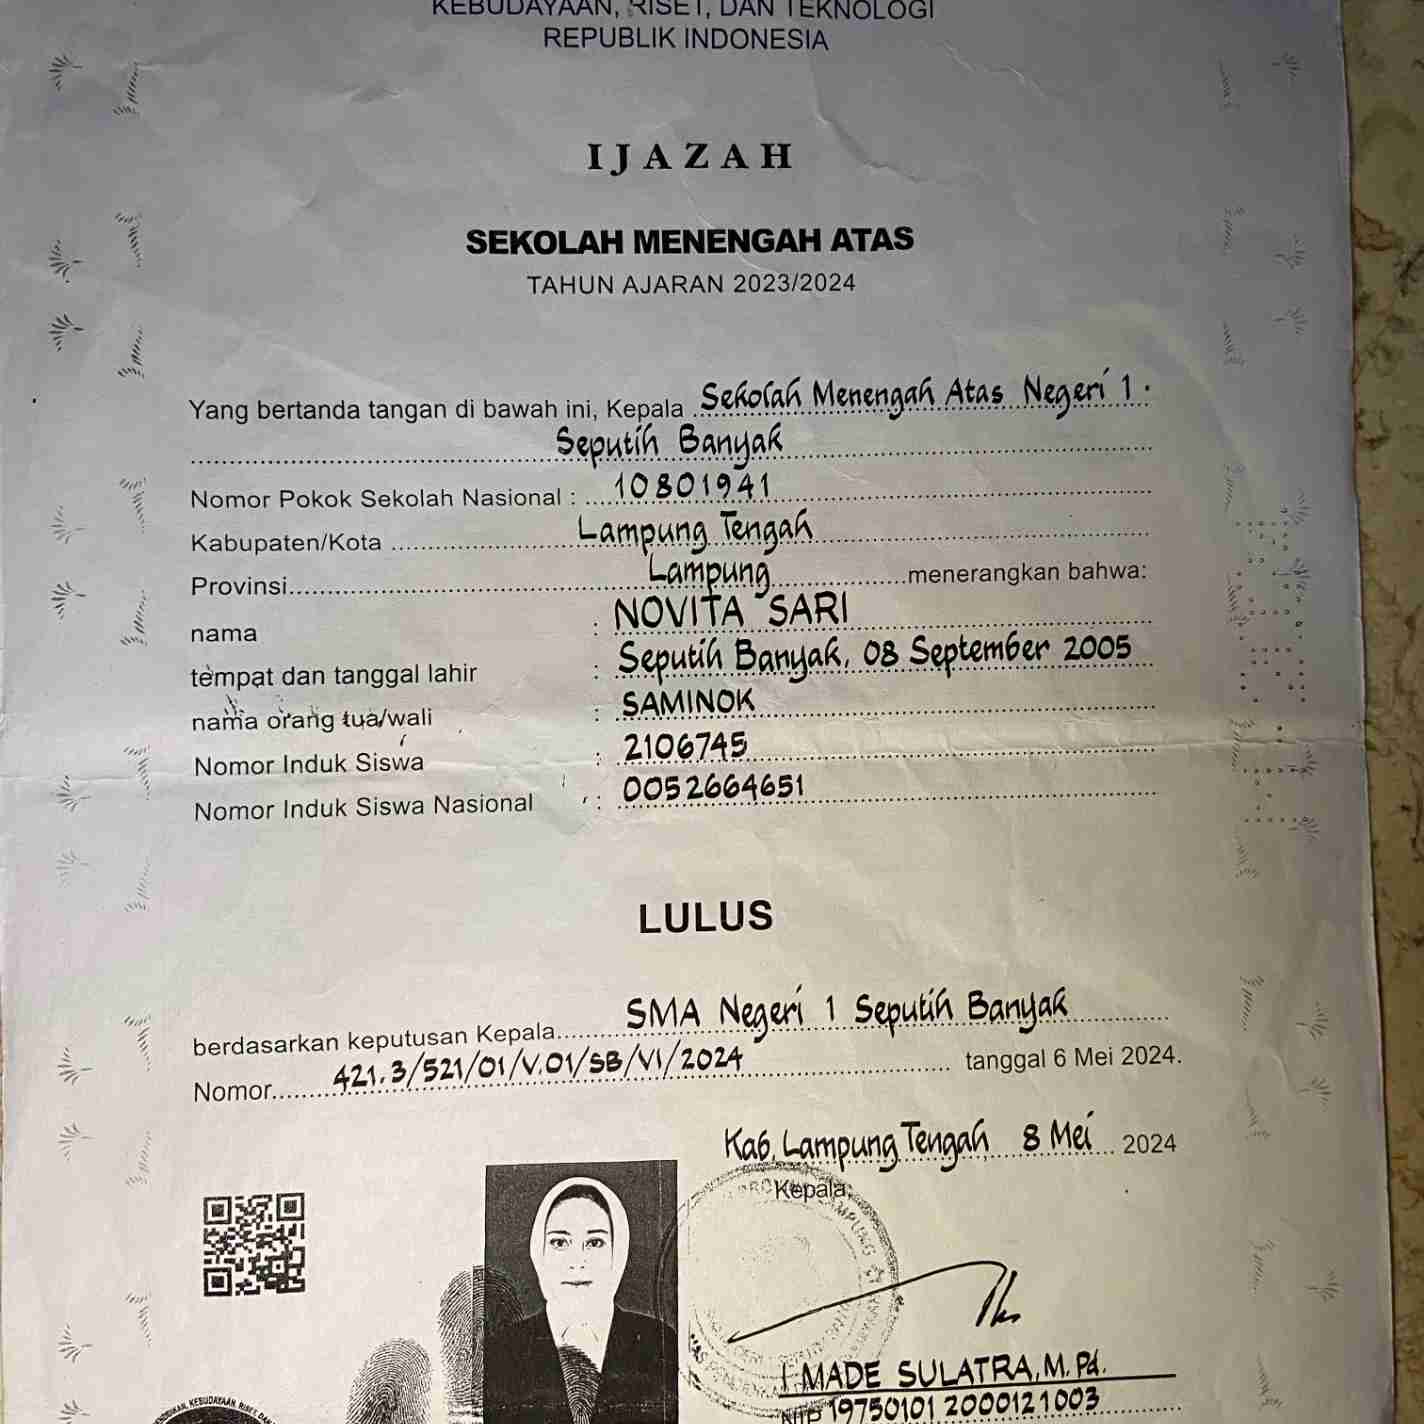 KEBUDAYAAN, RISET, DAN TEKNOLOGI
REPUBLIK INDONESIA
IJAZAH
SEKOLAH MENENGAH ATAS
TAHUN AJARAN 2023/2024
Yang bertanda tangan di bawah ini, Kepala Sekolah Menengah Atas Negeri 1
Seputih Banyak
Nomor Pokok Sekolah Nasional : 10801941
Kabupaten/Kota Lampung Tengah
Provinsi Lampung menerangkan bahwa:
nama : NOVITA SARI
tempat dan tanggal lahir : Seputih Banyak, 08 September 2005
nama orang tua/wali : SAMINOK
Nomor Induk Siswa : 2106745
Nomor Induk Siswa Nasional : 0052664651
LULUS
berdasarkan keputusan Kepala SMA Negeri 1 Seputih Banyak
Nomor 421.3/521/01/V.01/SB/VI/2024 tanggal 6 Mei 2024.
Kab. Lampung Tengah, 8 Mei 2024
Kepala,
I MADE SULATRA, M.Pd.
NIP 19750101 2000121003